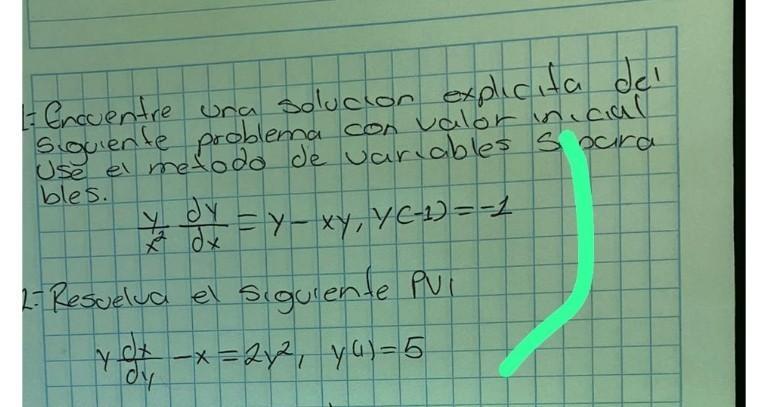 1= Encuentre una solucion explicita del
siguiente problema con valor inicial
Use el metodo de variables separa
bles.
y/x² dy/dx = y - xy, y(-1) = -1
2= Resuelva el siguiente PVI
y dx/dy - x = 2y², y(1) = 5